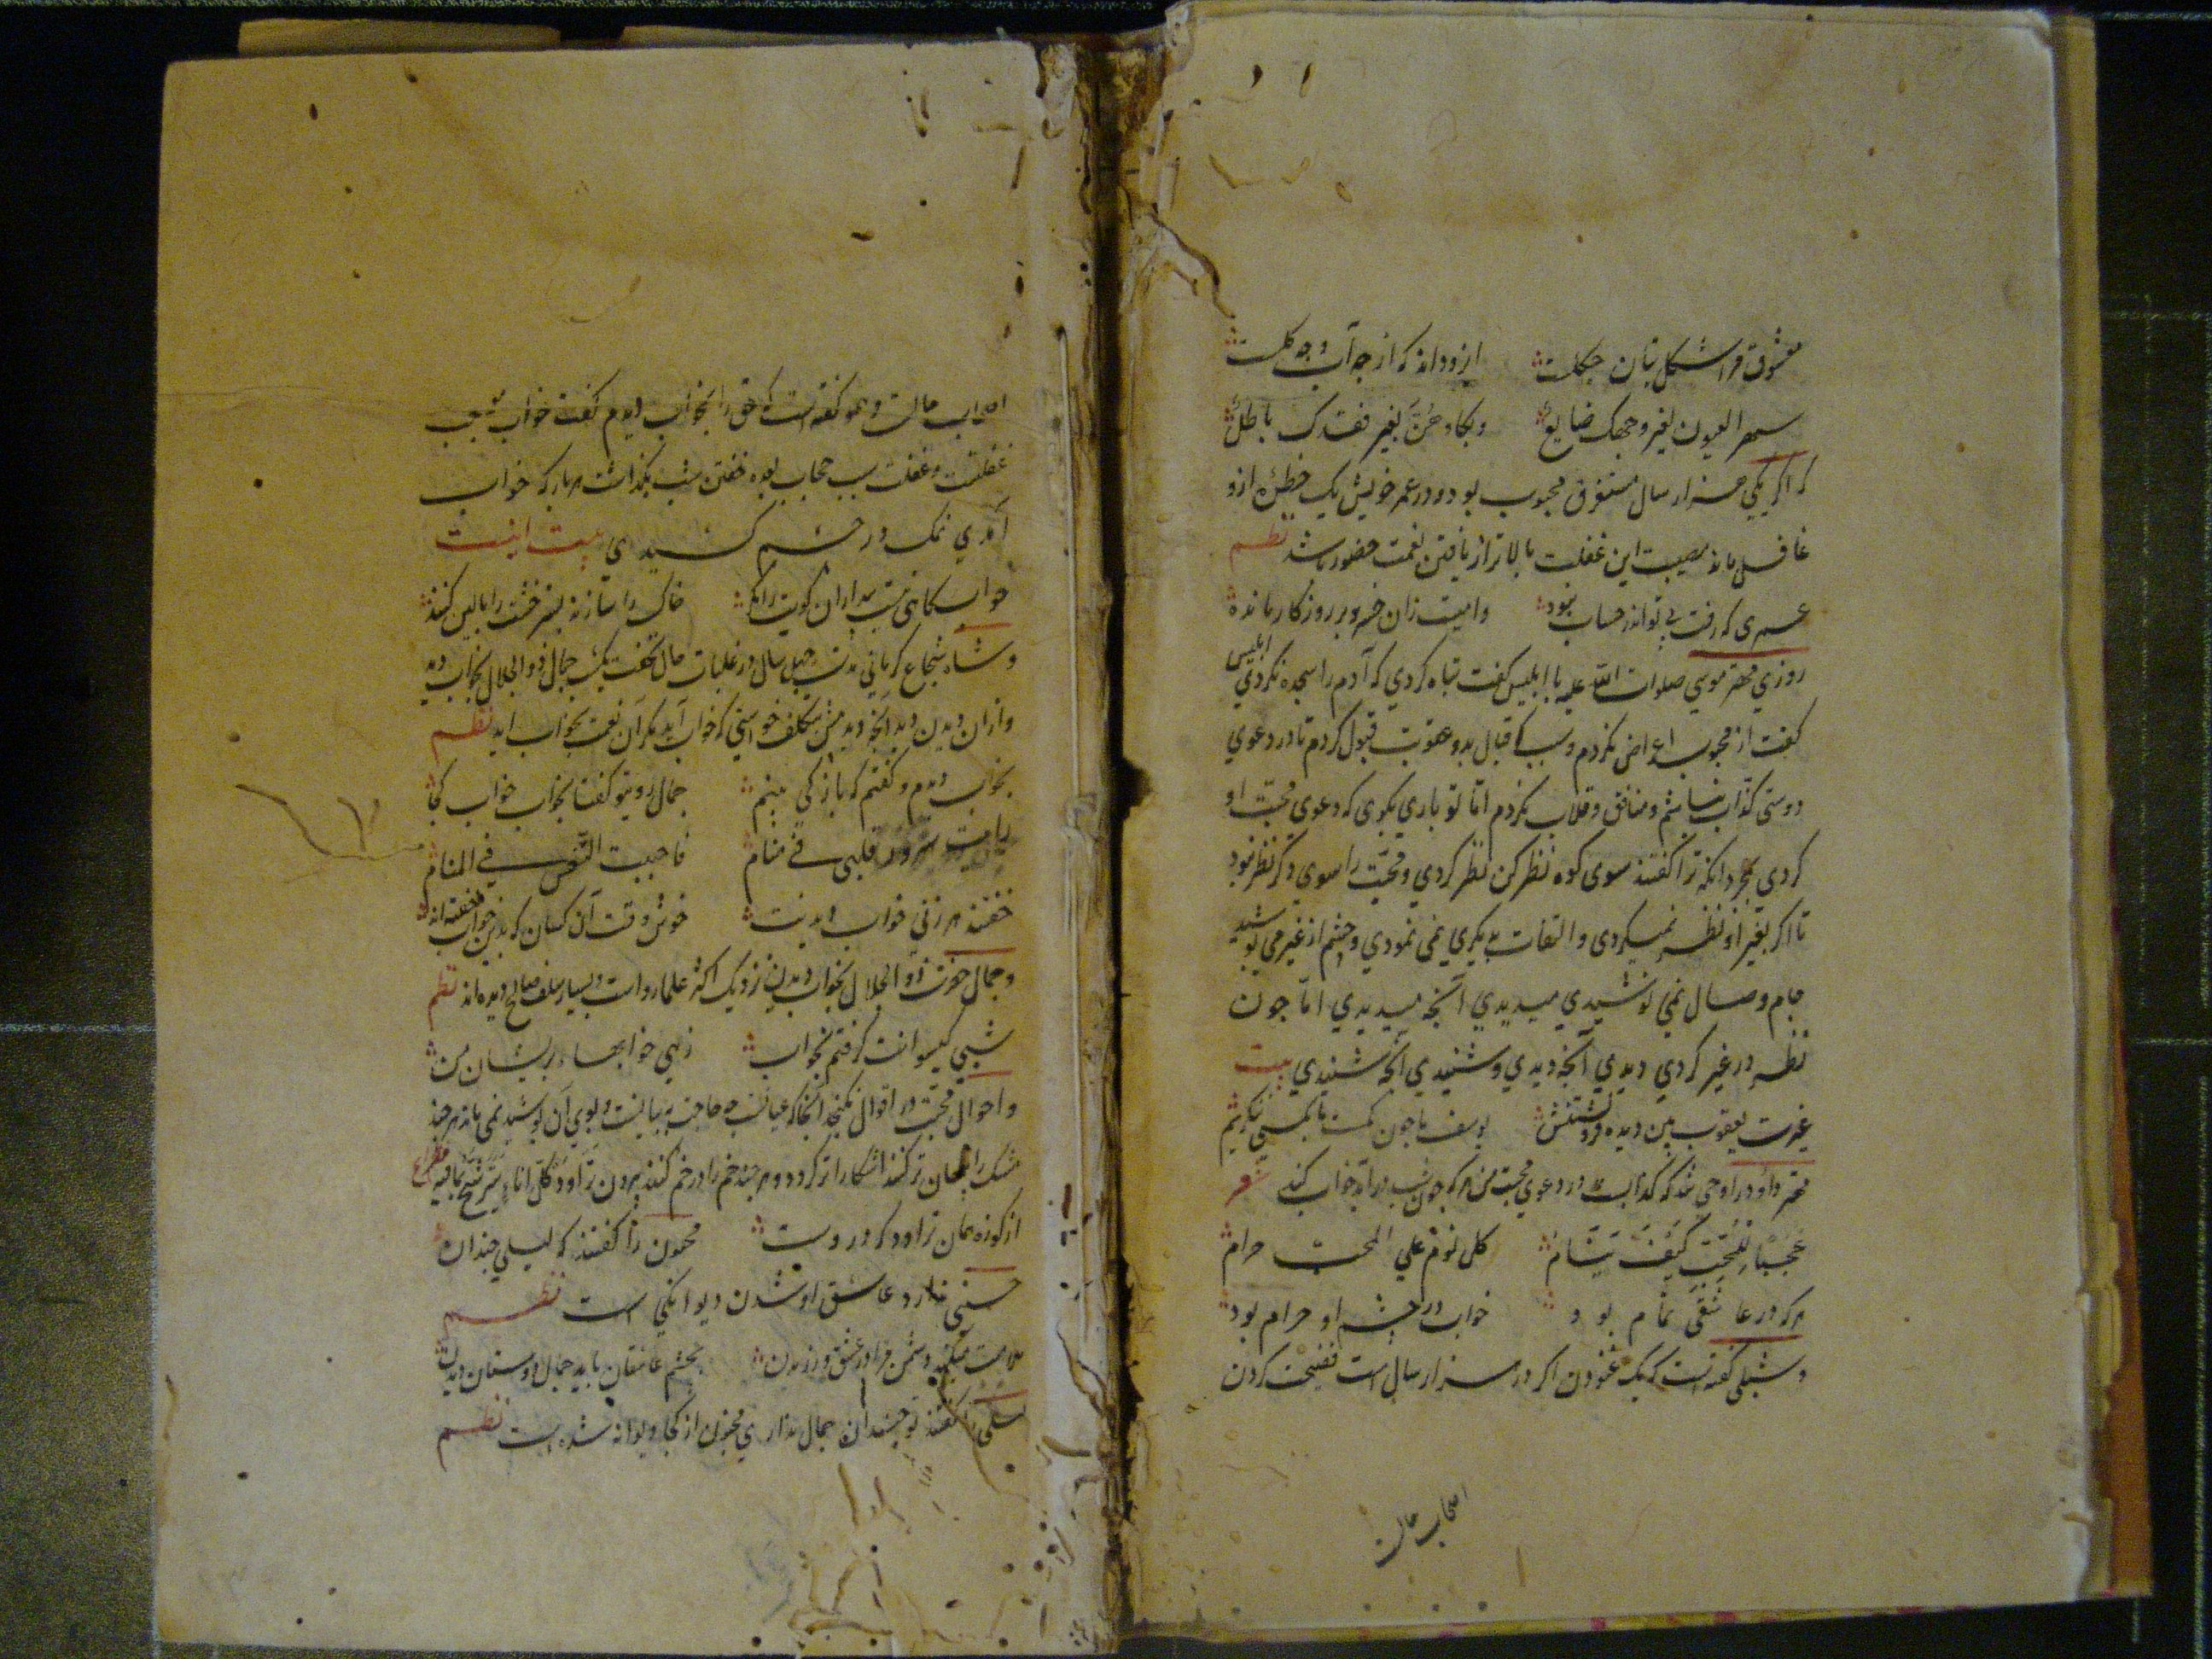 معشوق مرا شکل بتان چگلست ایزد داند که از چه آب و چه گلست
سهر العیون لغیر وجهک ضایع و بکاءهن لغیر فقدک باطل
که اگر یکی هزار سال مستغرق محبوب بود و در عمر خویش یک خطره ازو
غافل ماند مصیبت این غفلت بالاتر از یافتن نعمت حضور باشد نظم
عمری که رفت بی تو اندر حساب نبود ماندہ
روزی مهتر موسی صلوات الله علیه با ابلیس گفت تباه کردی که آدم را سجده نکردی ابلیس
گفت از محبوب اعراض نکردم و عقوبت قبول کردم تا در دعوی
دوستی کذاب نباشم و منافق و قلاب نگردم اما تو باری بگوی که دعوی محبت او
کردی بمجرد آنکه ترا گفتند سوی کوه نظر کن نظر کردی و محبت را سوی دگر نظر نبود
تا اگر بغیر او نظر نمیکردی و التفات بدیگری نمی نمودی و چشم از غیر می پوشید
جام وصال نمی نوشیدی میدیدی آنچه میدیدی اما چون
نظر در غیر کردی دیدی آنچه دیدی و شنیدی آنچه شنیدی بیت
غیرت یعقوب بین دیده فرو بستنش یوسف ما چون گمست ما بکسی ننگریم
مهتر داود را وحی شد که کذابست در دعوی محبت من هر که چون شب درآید خواب کند شعر
عجبا للمحب کیف ینام کل نوم علی المحب حرام
هر که در عاشقی تمام بود خواب در چشم او حرام بود
و شبلی گفته است که یک غنودن اگر در هزار سال است فضیحت کردن
اصحاب حالت
اصحاب حالت و هم گفته است که حق را بخواب دیدم گفت خواب سبب
غفلت و غفلت سبب حجاب بود خفتن شب بگذاشت هر بار که خواب
آمدی نمک در چشم کشیدی بیت اینست
خواب کاهی نیست بیداران کویت را مگر خاک را سازند بستر خشت را بالین کنند
و شاه شجاع کرمانی مدت چهل سال در غلبات حال نخفت یک شب جمال ذو الجلال بخواب دید
و ازان دیدن دید آنچه دید پس بتکلف خواستی که خواب آید مگر آن نعمت بخواب آید نظم
بخواب دیدم و گفتم که باز کی بینم جمال روی تو گفتا بخواب خواب کجا
رایت سرور قلبی فی منام فاحببت التنعس فی المنام
خوش وقت آن کسان که بدین خواب خفته اند
و جمال حضرت ذو الجلال بخواب دیدن نزدیک اکثر علما رواست و بسیار سلف صالح دیده اند نظم
شبی گیسوانت گرفتم بخواب زهی خوابهاء پریشان من
و احوال محبت در اقوال نگنجد آنجا که عیانست چه حاجت به بیانست و بوی آن پوشیده نمی ماند هر چند
مشک را پنهان تر کنند آشکاراتر گردد و هر چند خم را در خم کنند بیرون تراود کل اناء یترشح بما فیه مصراع
از کوزه همان تراود که دروست مجنون را گفتند که لیلی چندان
حسنی ندارد عاشق او شدن دیوانگی است نظم
ملامت میکند دشمن مرا در عشق ورزیدن بچشم عاشقان باید جمال دوستان دیدن
لیلی را گفتند تو چندان جمال نداری مجنون از کجا دیوانه شده است نظم